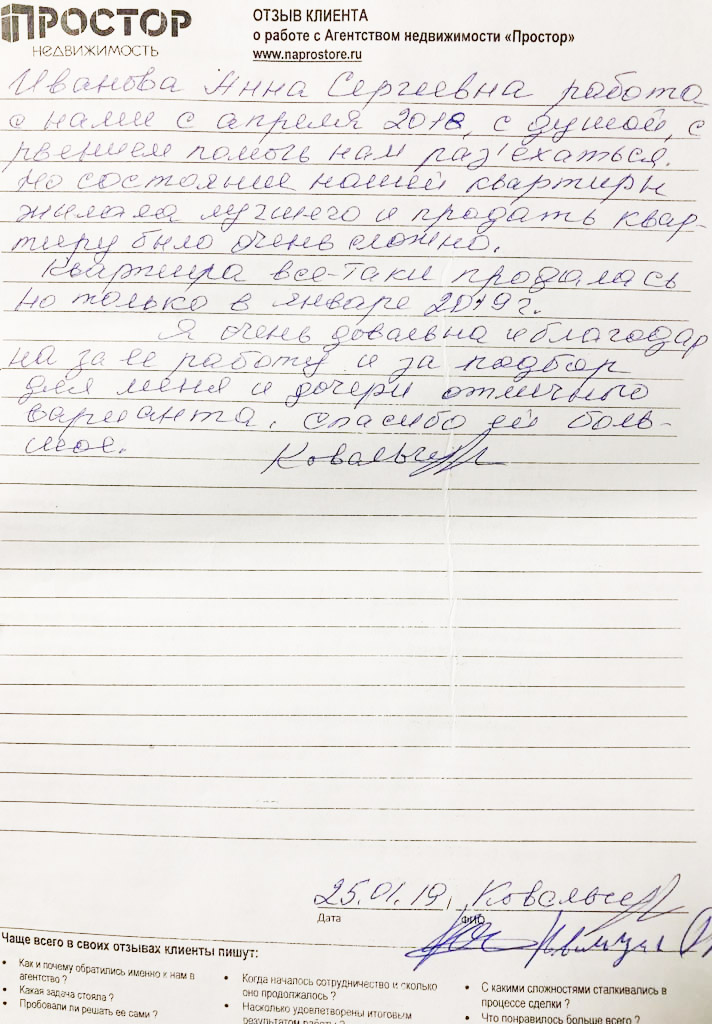 ПРОСТОР
НЕДВИЖИМОСТЬ
ОТЗЫВ КЛИЕНТА
о работе с Агентством недвижимости «Простор»
www.naprostore.ru
Иванова Анна Сергеевна работа
с нами с апреля 2018, с душой, с
рвением помочь нам раз'ехаться.
Но состояние нашей квартиры
желала лучшего и продать квар-
тиру было очень сложно.
Квартира все-таки продалась
но только в январе 2019г.
Я очень довольна и благодар
на за ее работу и за подбор
для меня и дочери отличного
варианта. Спасибо ей боль-
шое.
25.01.19,
Дата
ФИО
Чаще всего в своих отзывах клиенты пишут:
• Как и почему обратились именно к нам в
агентство ?
• Какая задача стояла ?
• Пробовали ли решать ее сами ?
• Когда началось сотрудничество и сколько
оно продолжалось ?
• Насколько удовлетворены итоговым
результатом работы ?
• С какими сложностями сталкивались в
процессе сделки ?
• Что понравилось больше всего ?